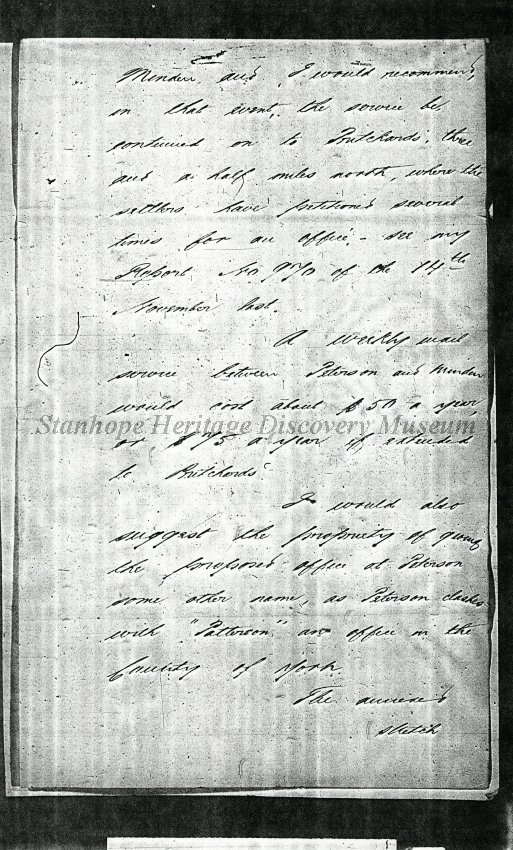 Minden and I would recommend,
in that event, the service be
continued on to Pritchards', three
and a half miles north, where the
settlers have petitioned several
times for an office - see my
Report No. of the 14th
November last.
A weekly mail
service between Peterson and Minden
would cost about $50 a year,
or $75 a year if extended
to Pritchards'.
Stanhope Heritage Discovery Museum
I would also
suggest the propriety of giving
the proposed office at Peterson
some other name, as Peterson clashes
with "Patterson" an office in the
County of York.
The annexed
sketch